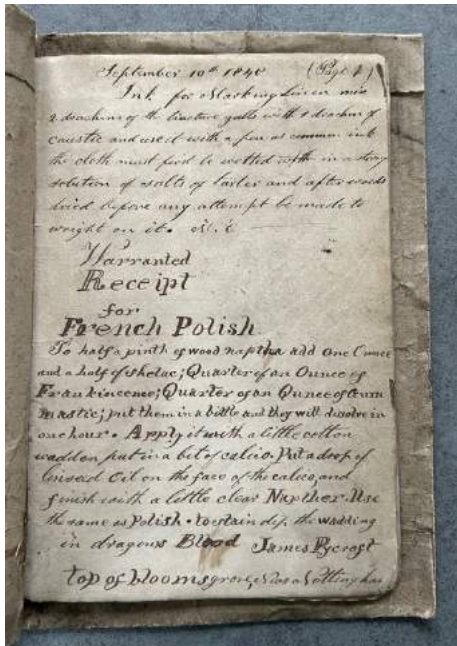 September 10th 1848 (Page 1)
Ink for Marking Linen mix
2 drachms of the tincture galls with 1 drachm of
caustic and use it with a pen as common ink
the cloth must first be wetted with in a strong
solution of salts of tarter and afterwards
dried before any attempt be made to
wright on it.
Warranted
Receipt
for
French Polish
To half a pinth of wood naptha add One Ounce
and a half of shelac; Quarter of an Ounce of
Frankincence; Quarter of an Ounce of Gum
mastic; put them in a bottle and they will disolve in
one hour. Apply it with a little cotton
wadden put in a bit of calico. Put a drop of
linseed Oil on the face of the calico, and
finish with a little clear Napther. Use
the same as Polish. to stain dip the wadding
in dragons Blood James Pycroft
top of bloomsgrove, Nottingham